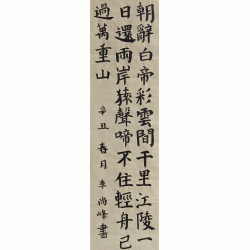 朝辭白帝彩雲間千里江陵一
日還兩岸猿聲啼不住輕舟已
過萬重山
辛丑春月李尚峰書